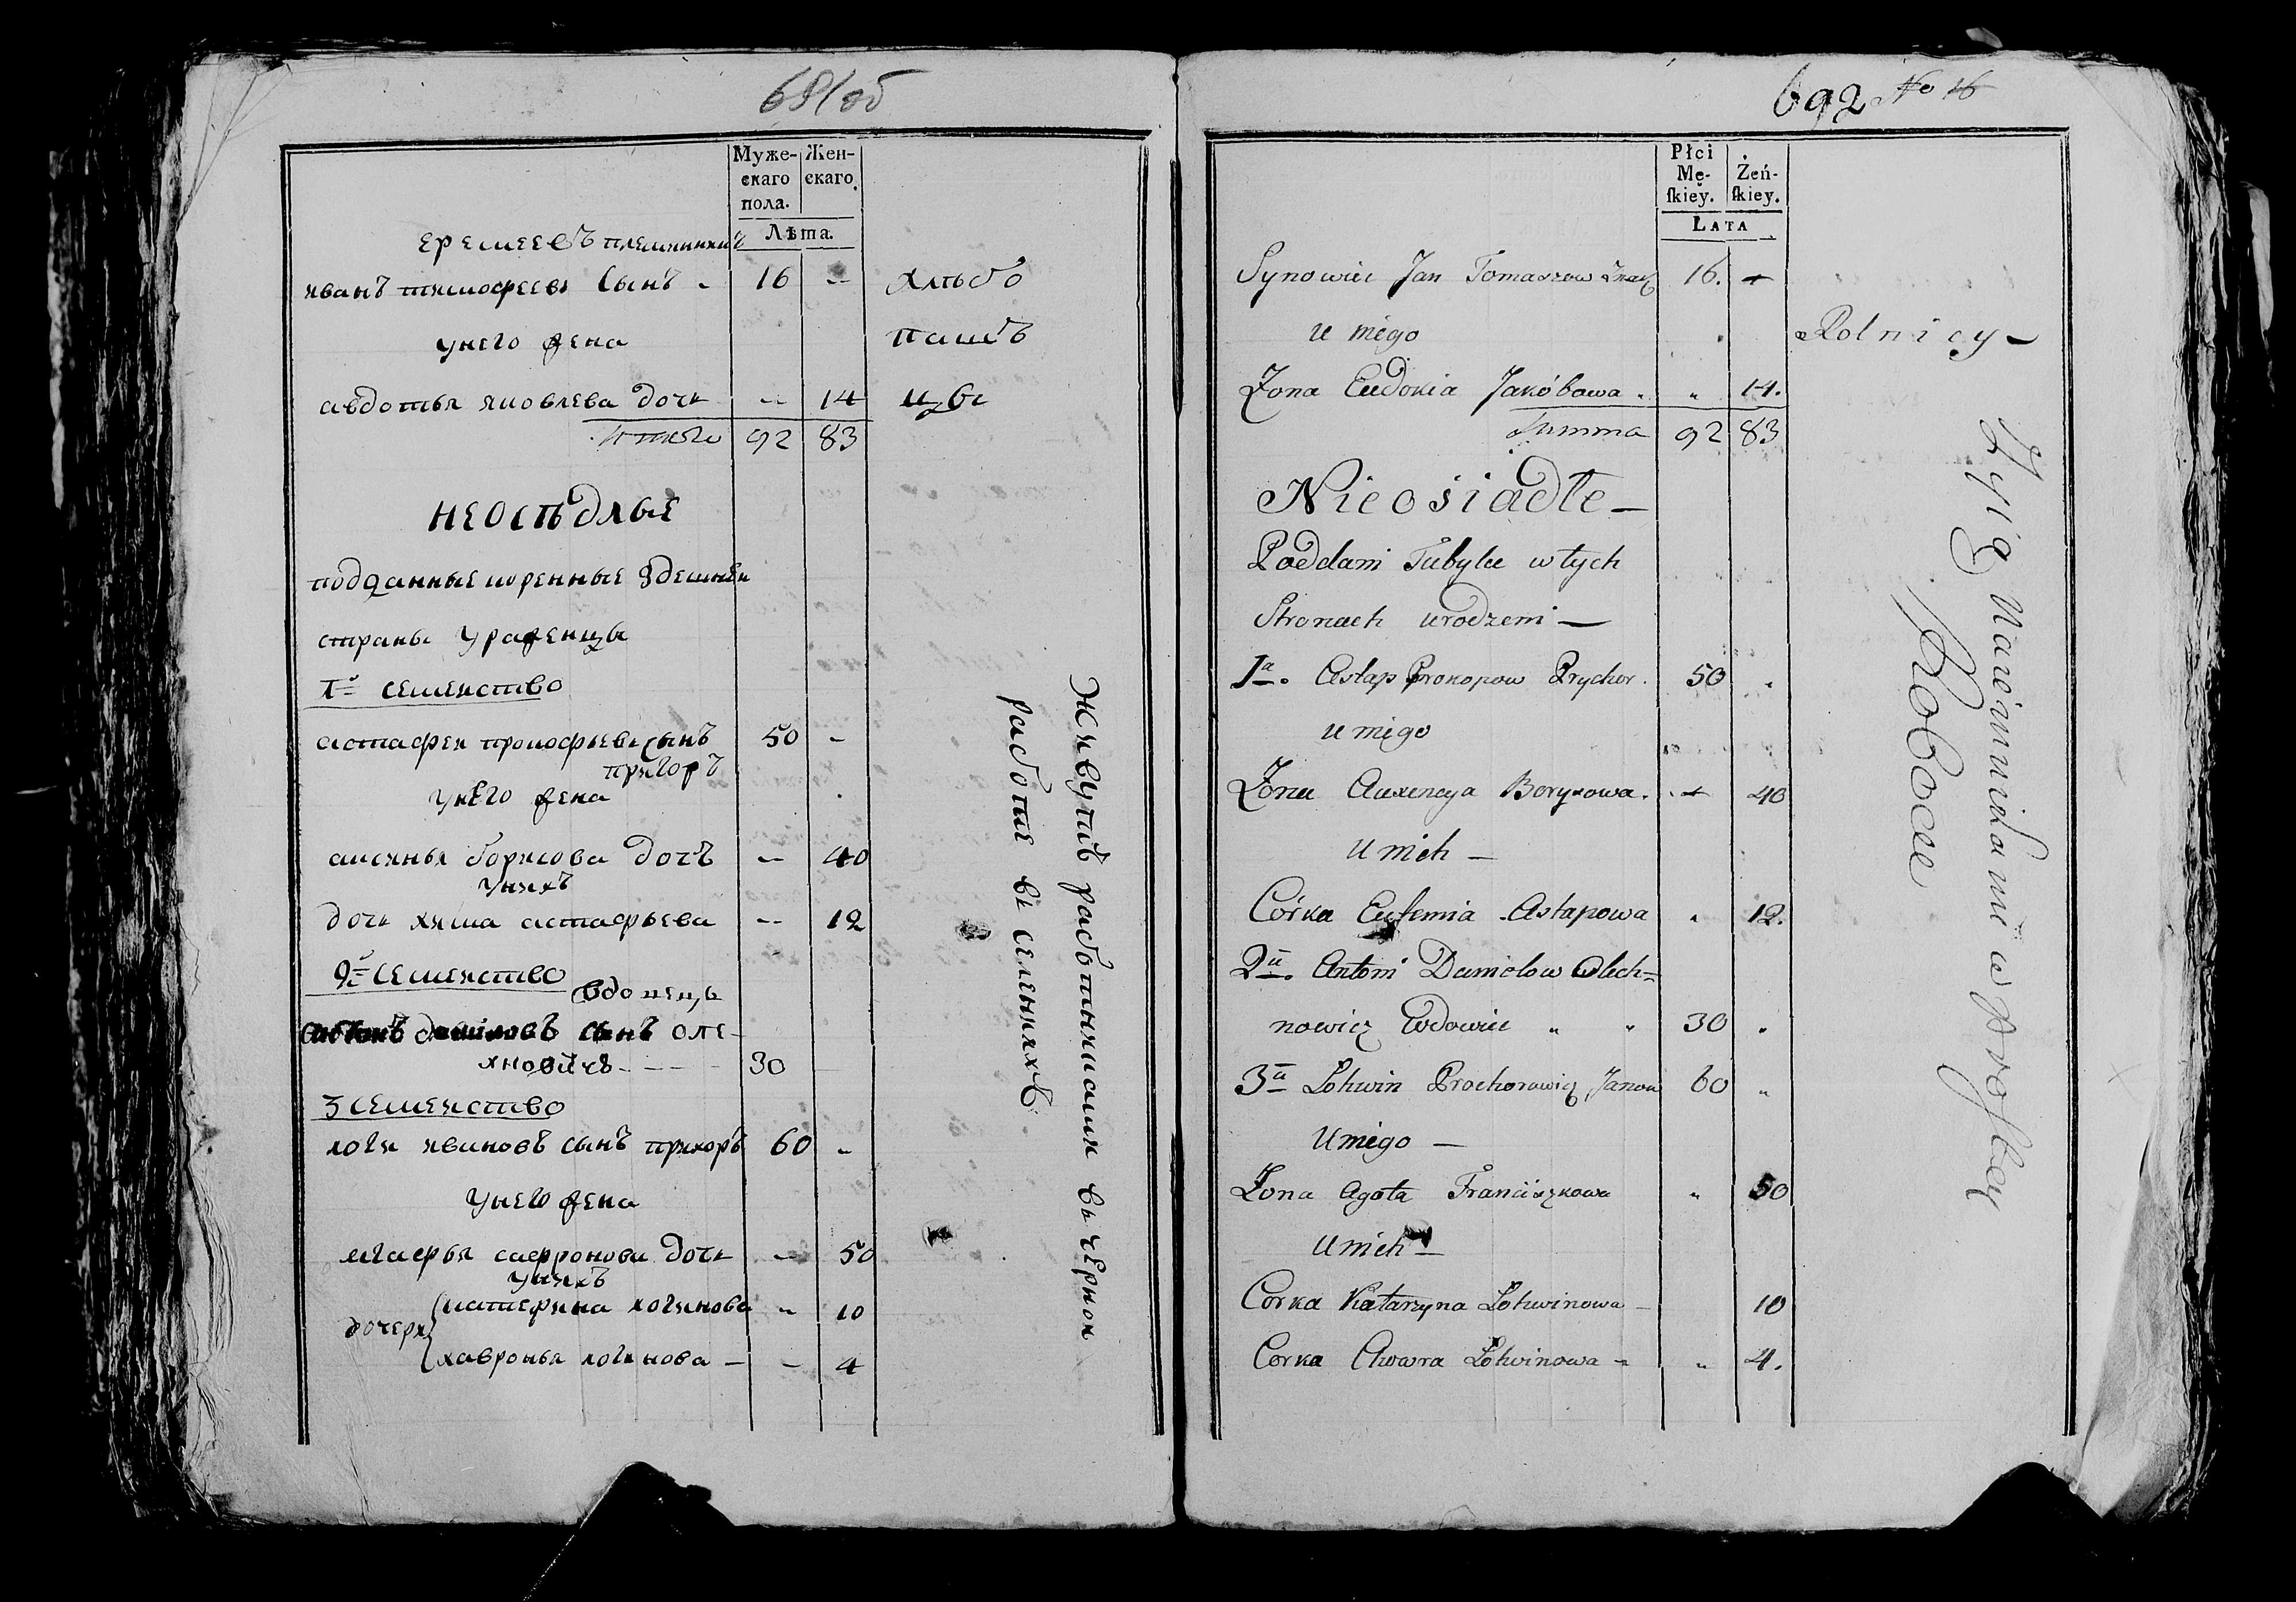 691об
Муже-
скаго
пола.
Жен-
скаго.
Лѣта.
еремеевъ племянникъ
иванъ тимофеевъ сынъ 16 -- хлѣбо
унего жена пашъ
авдотья яковлева дочь -- 14 цы
итого 92 83
неосѣдлые
подданные коренные здешнеи
страны уроженцы
1й семеиство
астафеи прокофьевъ сынъ 50 -
пригоръ
унего жена
аксинья борисова дочъ -- 40
унихъ
дочь химa астафьева -- 12
2е семеиство вдовецъ
антонъ даниловъ сынъ оле-
хновичъ - - - - 30
3 семеиство
логин ивановъ сынъ прихоръ 60 -
унего жена
агафья сафронова дочь - 50
унихъ
дочери
катерина логинова - 10
хавронья логинова - - 4
Живутъ работниками въ чернои
работе въ селенияхъ
692 No 16
Płci
Mę-
ſkiey.
Żeń-
ſkiey.
LATA
Synowiec Jan Tomaszow 16. -
u niego Rolnicy -
Zona Eudokia Jakóbowa . " 14.
Summa 92 83
Nieosiadłe -
Poddani Tubylce w tych
Stronach urodzeni -
1a. Astap Prokopow Prychor. 50 .
u niego
Zona Auxencya Borysowa. - 40
U nich -
Córka Eufemia Astapowa " 12.
2a. Antoni Daniołow Olech=
nowicz Wdowiec " " 30 .
3a Łohwin Prochorowicz Janow 60 "
U niego -
Zona Agata Franciszkowa " 50
U nich -
Corka Katarzyna Łohwinowa - 10
Corka Chwora Łohwinowa - " 4.
Żyią Naiemnikami w prostey
Robocie